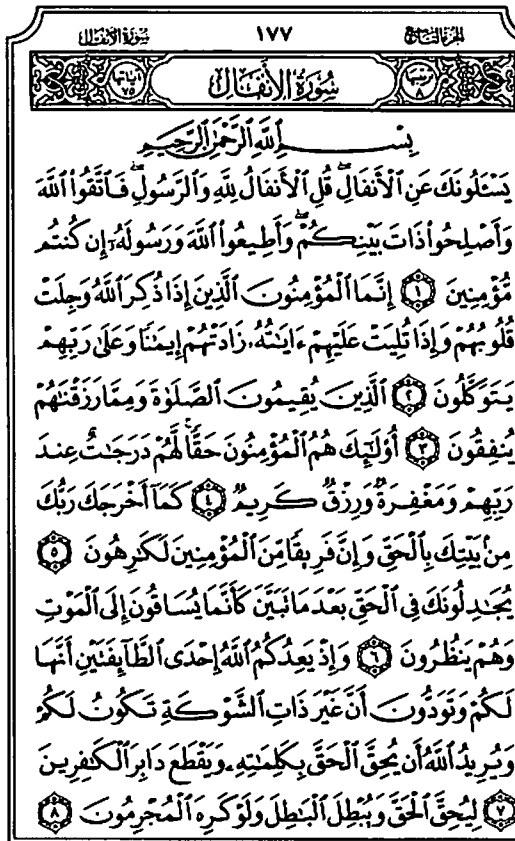 سُورَةُ الأَنفَال ١٧٧ الجُزءُ التَّاسِعُ
آيَاتُهَا ٧٥ سُورَةُ الأَنفَالِ تَرْتِيبُهَا ٨
بِسْمِ ٱللَّهِ ٱلرَّحْمَٰنِ ٱلرَّحِيمِ
يَسْـَٔلُونَكَ عَنِ ٱلْأَنفَالِۖ قُلِ ٱلْأَنفَالُ لِلَّهِ وَٱلرَّسُولِۖ فَٱتَّقُوا۟ ٱللَّهَ
وَأَصْلِحُوا۟ ذَاتَ بَيْنِكُمْۖ وَأَطِيعُوا۟ ٱللَّهَ وَرَسُولَهُۥٓ إِن كُنتُم
مُّؤْمِنِينَ ١ إِنَّمَا ٱلْمُؤْمِنُونَ ٱلَّذِينَ إِذَا ذُكِرَ ٱللَّهُ وَجِلَتْ
قُلُوبُهُمْ وَإِذَا تُلِيَتْ عَلَيْهِمْ ءَايَٰتُهُۥ زَادَتْهُمْ إِيمَٰنًا وَعَلَىٰ رَبِّهِمْ
يَتَوَكَّلُونَ ٢ ٱلَّذِينَ يُقِيمُونَ ٱلصَّلَوٰةَ وَمِمَّا رَزَقْنَٰهُمْ
يُنفِقُونَ ٣ أُو۟لَٰٓئِكَ هُمُ ٱلْمُؤْمِنُونَ حَقًّاۚ لَّهُمْ دَرَجَٰتٌ عِندَ
رَبِّهِمْ وَمَغْفِرَةٌ وَرِزْقٌ كَرِيمٌ ٤ كَمَآ أَخْرَجَكَ رَبُّكَ
مِنۢ بَيْتِكَ بِٱلْحَقِّ وَإِنَّ فَرِيقًا مِّنَ ٱلْمُؤْمِنِينَ لَكَٰرِهُونَ ٥
يُجَٰدِلُونَكَ فِى ٱلْحَقِّ بَعْدَ مَا تَبَيَّنَ كَأَنَّمَا يُسَاقُونَ إِلَى ٱلْمَوْتِ
وَهُمْ يَنظُرُونَ ٦ وَإِذْ يَعِدُكُمُ ٱللَّهُ إِحْدَى ٱلطَّآئِفَتَيْنِ أَنَّهَا
لَكُمْ وَتَوَدُّونَ أَنَّ غَيْرَ ذَاتِ ٱلشَّوْكَةِ تَكُونُ لَكُمْ
وَيُرِيدُ ٱللَّهُ أَن يُحِقَّ ٱلْحَقَّ بِكَلِمَٰتِهِۦ وَيَقْطَعَ دَابِرَ ٱلْكَٰفِرِينَ
٧ لِيُحِقَّ ٱلْحَقَّ وَيُبْطِلَ ٱلْبَٰطِلَ وَلَوْ كَرِهَ ٱلْمُجْرِمُونَ ٨